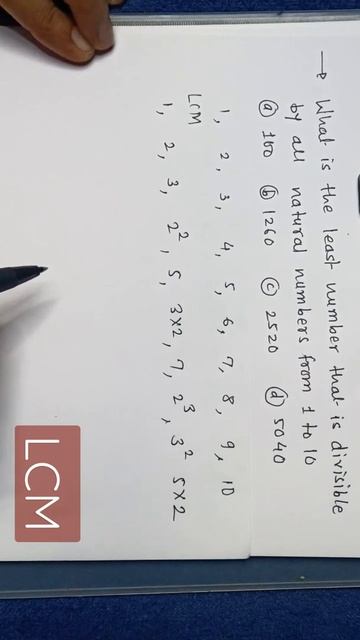 → What is the least number that is divisible
by all natural numbers from 1 to 10
(a) 100 (b) 1260 (c) 2520 (d) 5040
1, 2, 3, 4, 5, 6, 7, 8, 9, 10
LCM
1, 2, 3, 2², 5, 3×2, 7, 2³, 3² 5×2
LCM